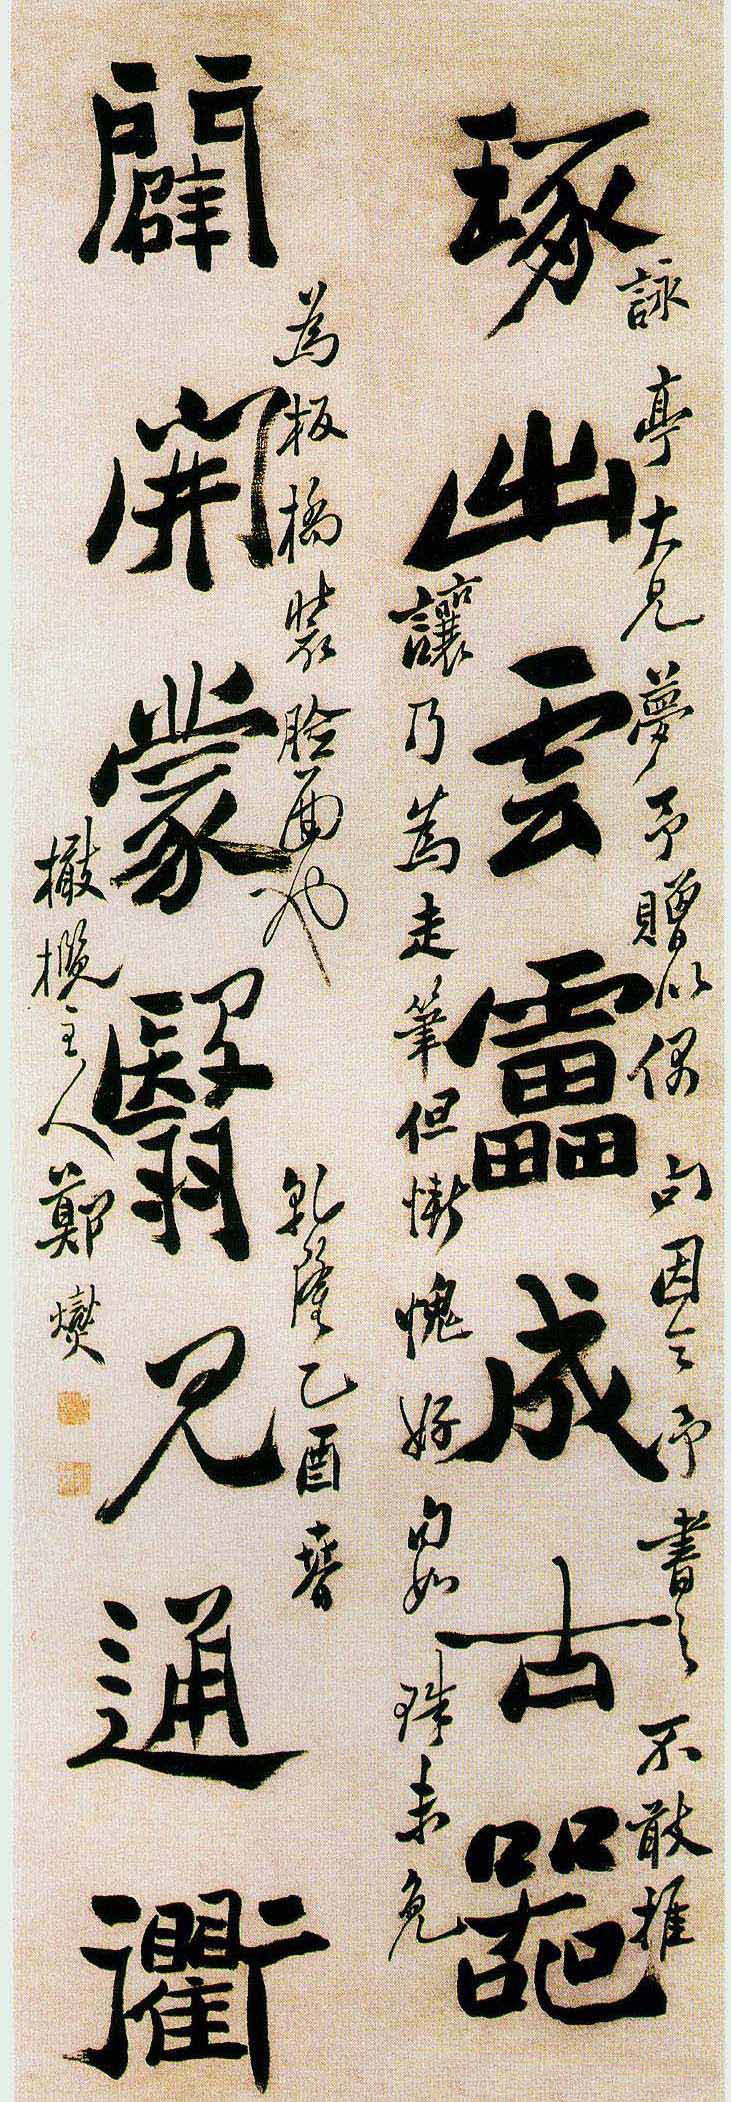 詠亭大兄夢予贈以偶句因令予書之不敢推
琢出云靁成古器
讓乃為走筆但慚愧好句如珠未免
為板橋裝臉面也 乾隆乙酉春
闢開蒙翳見通衢
橄欖主人鄭燮